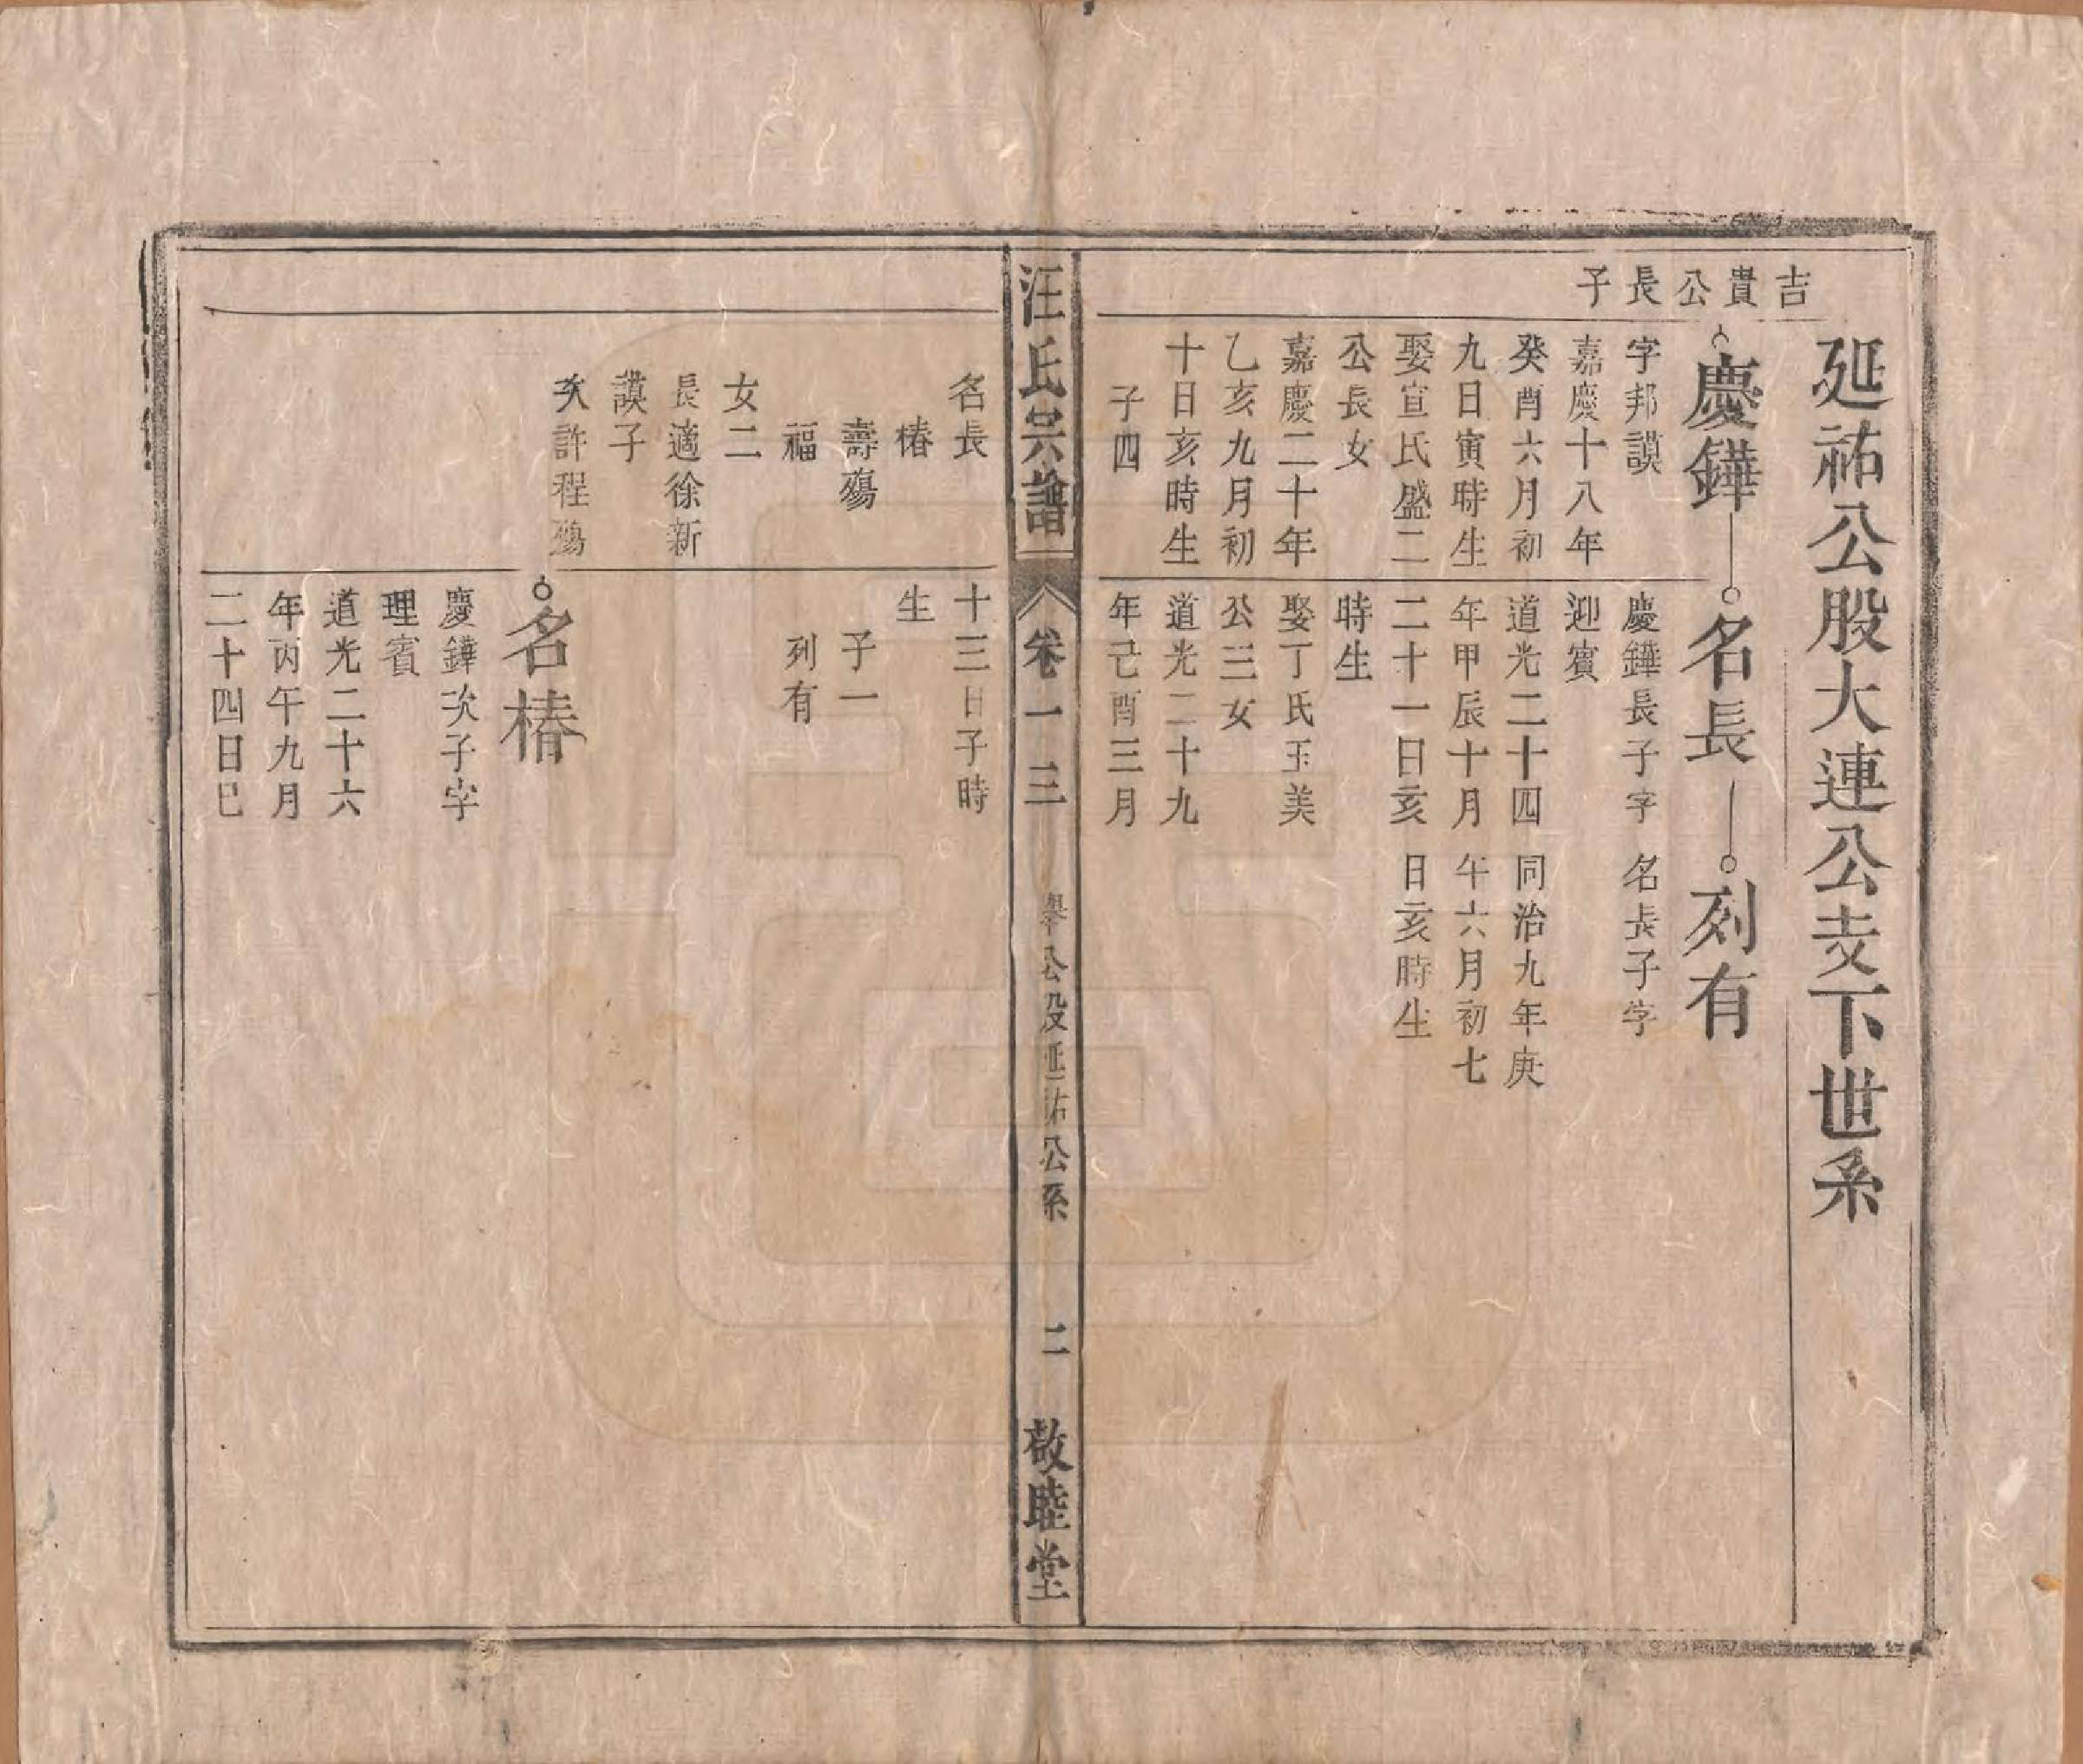 延祐公股大連公支下世系
吉貴公長子
慶鏵
字邦謨
嘉慶十八年
癸酉六月初
九日寅時生
娶宣氏盛二
公長女
嘉慶二十年
乙亥九月初
十日亥時生
子四
名長
慶鏵長子字
迎賓
道光二十四
年甲辰十月
二十一日亥
時生
娶丁氏玉美
公三女
道光二十九
年己酉三月
列有
名長子字
同治九年庚
午六月初七
日亥時生
汪氏宗譜
卷一三
舉公股延祐公系
二
敬睦堂
名長
椿
壽殤
福
女二
長適徐新
謨子
次許程殤
十三日子時
生
子一
列有
名椿
慶鏵次子字
理賓
道光二十六
年丙午九月
二十四日巳